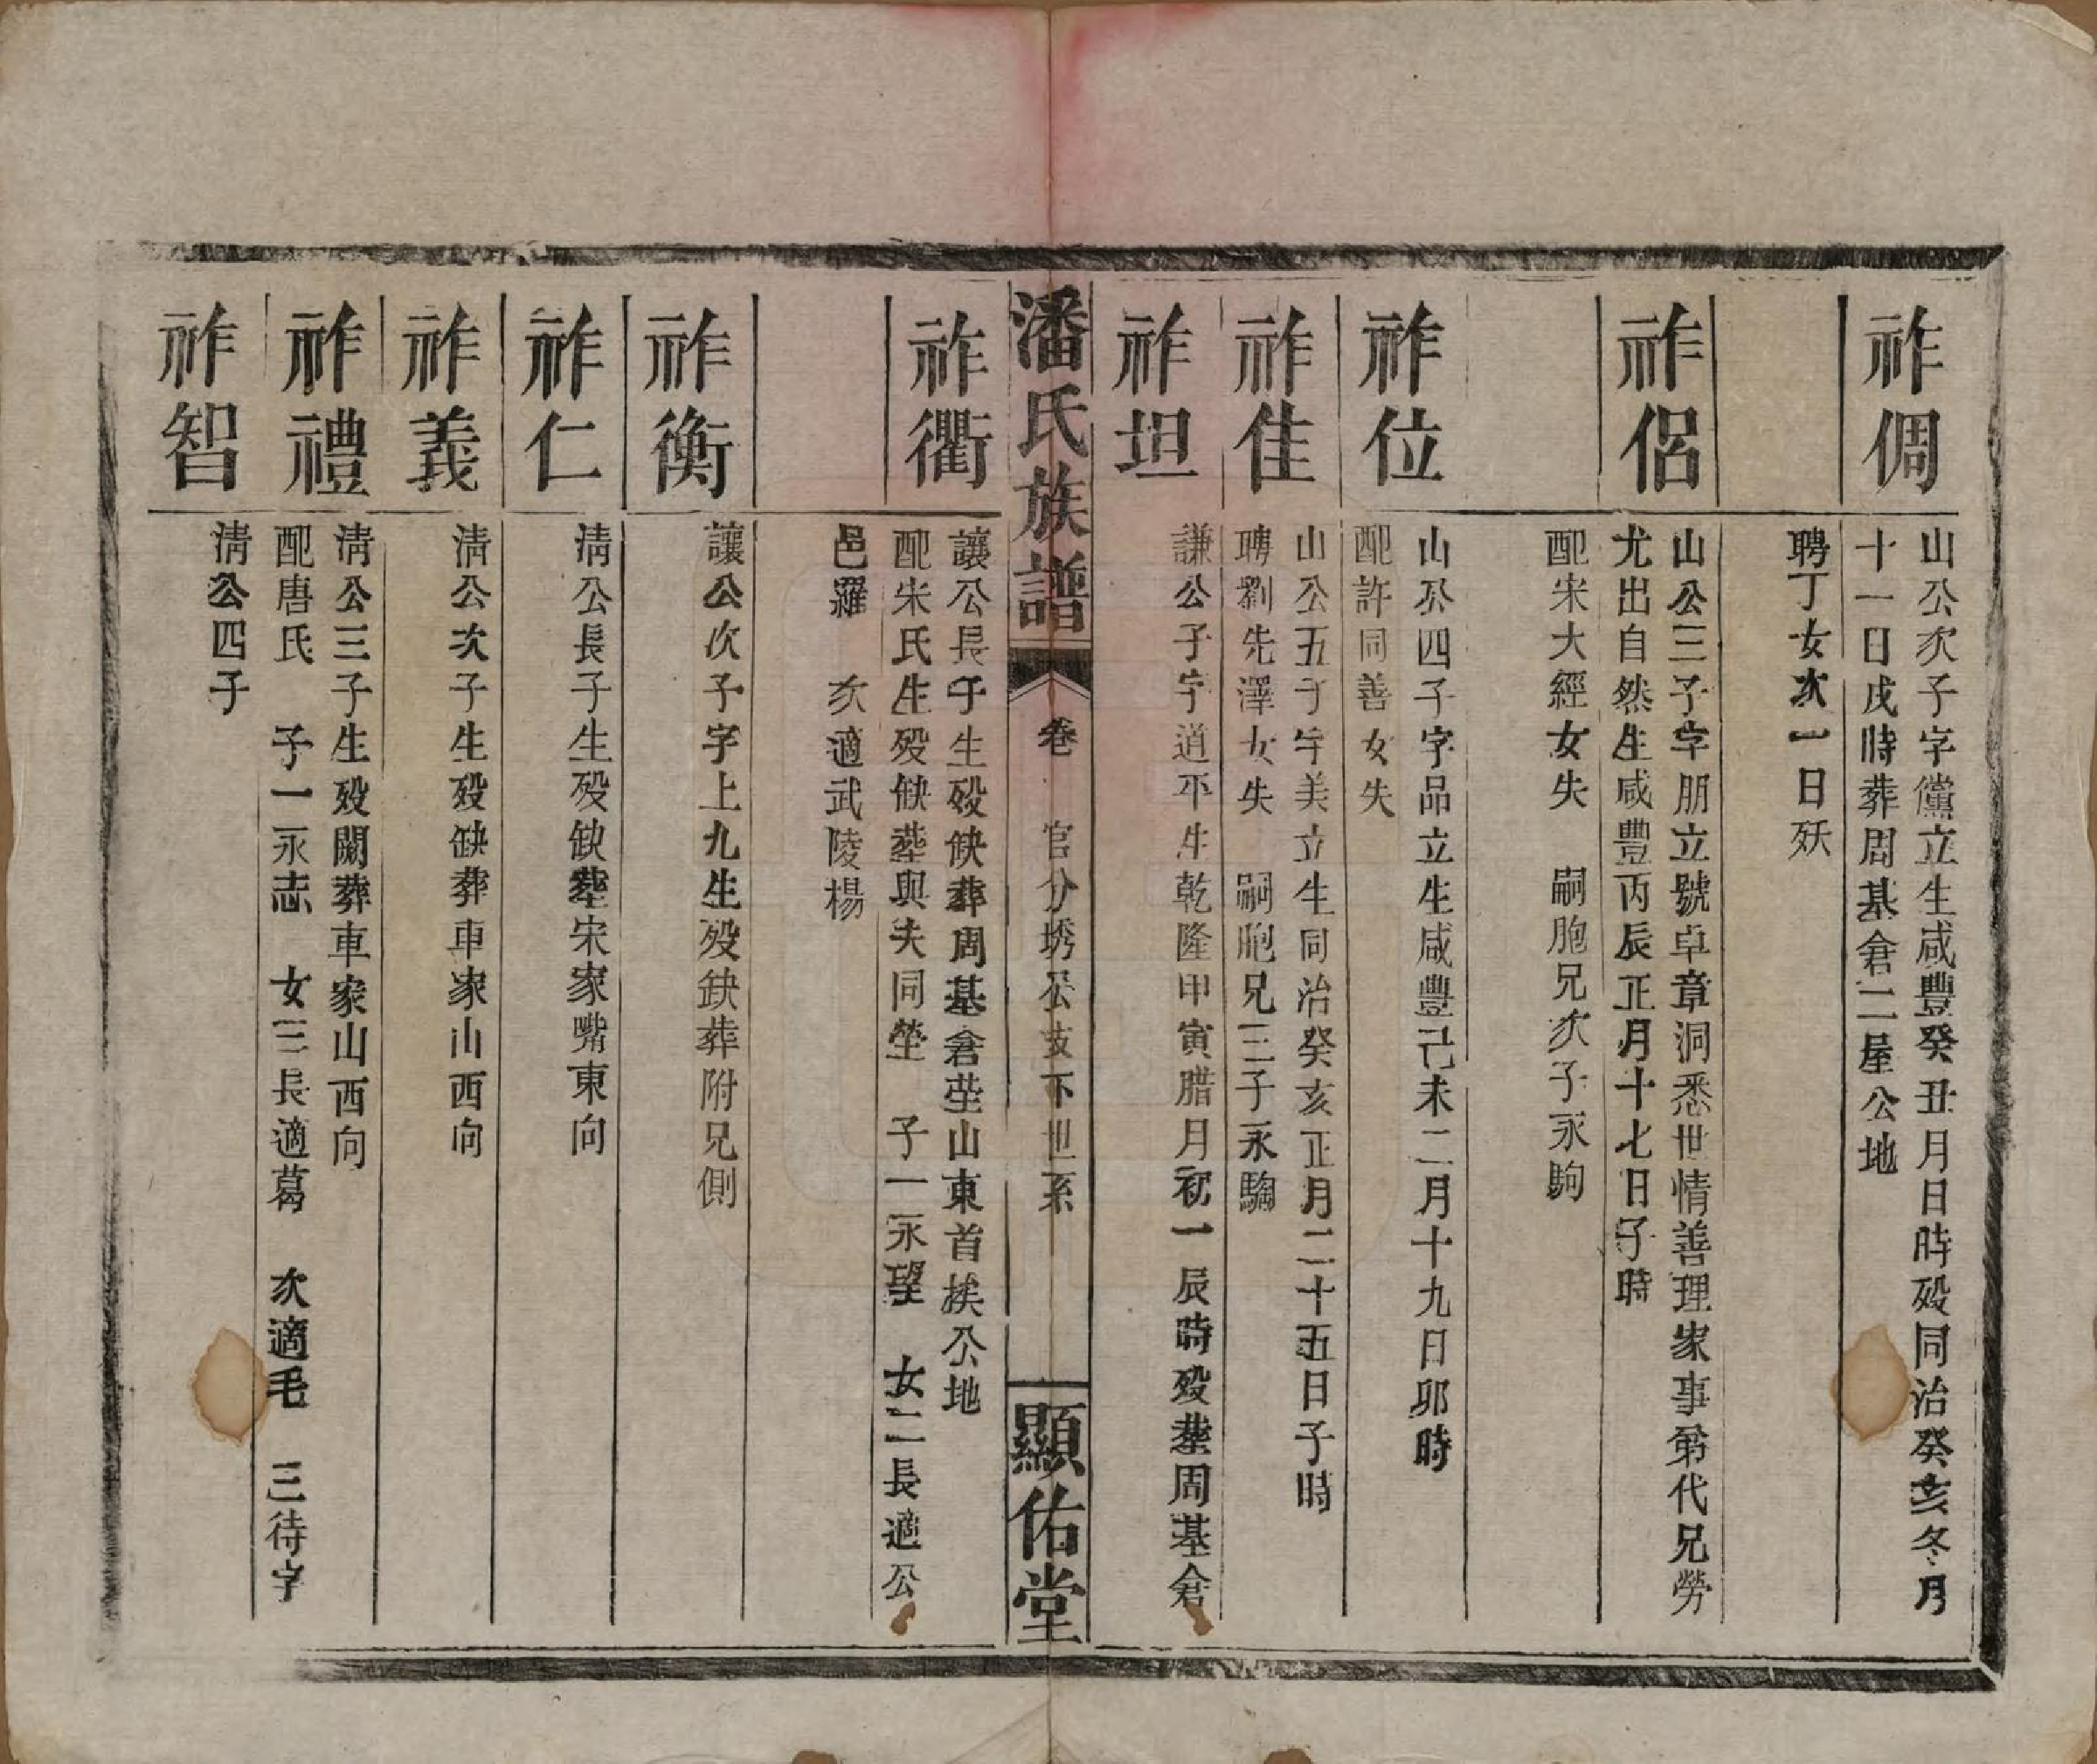 祚倜
山公次子字儻立生咸豐癸丑月日時殁同治癸亥冬月
十一日戌時葬周基倉二屋公地
聘丁女次一日殀
祚侶
山公三子字朋立號卓章洞悉世情善理家事第代兄勞
尤出自然生咸豐丙辰正月十七日子時
配宋大經女失 嗣胞兄次子永駒
祚位
山公四子字品立生咸豐己未二月十九日卯時
配許同善女失
祚佳
山公五子字美立生同治癸亥正月二十五日子時
聘劉先澤女失 嗣胞兄三子永騶
祚坦
謙公子字道平生乾隆甲寅腊月初一辰時殁葬周基倉
潘氏族譜 卷 官分琇公支下世系 顯佑堂
祚衢
讓公長子生殁缺葬周基倉塋山東首挨公地
配宋氏生殁缺葬與夫同塋 子一永望 女二長適公
邑羅 次適武陵楊
祚衡
讓公次子字上九生殁缺葬附兄側
祚仁
清公長子生殁缺葬宋家嘴東向
祚義
清公次子生殁缺葬車家山西向
祚禮
清公三子生殁闕葬車家山西向
配唐氏 子一永志 女三長適葛 次適毛 三待字
祚智
清公四子